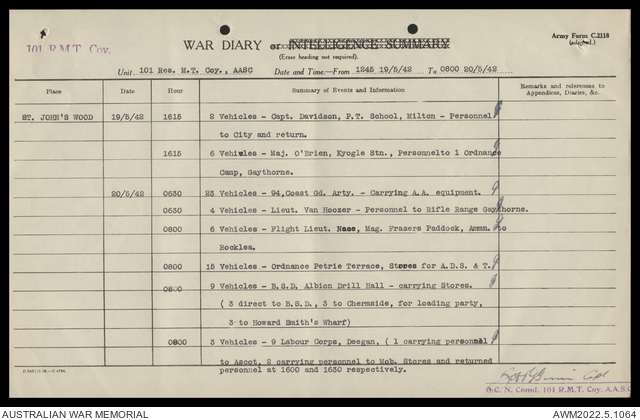 101 R.M.T. Coy.
WAR DIARY or INTELLIGENCE SUMMARY
(Erase heading not required).
Army Form C.2118
(adapted.)
Unit 101 Res. M.T. Coy., AASC Date and Time—From 1245 19/5/42 To 0800 20/5/42
Place Date Hour Summary of Events and Information Remarks and references to Appendices, Diaries, &c.
ST. JOHN'S WOOD 19/5/42 1615 2 Vehicles - Capt. Davidson, P.T. School, Milton - Personnel
to City and return.
1615 6 Vehicles - Maj. O'Brien, Kyogle Stn., Personnelto 1 Ordnance
Camp, Gaythorne.
20/5/42 0630 23 Vehicles - 94,Coast Gd. Arty. - Carrying A.A. equipment.
0630 4 Vehicles - Lieut. Van Hoozer - Personnel to Rifle Range Gaythorne.
0800 6 Vehicles - Flight Lieut. Nase, Mag. Frazers Paddock, Ammn. to
Rocklea.
0800 15 Vehicles - Ordnance Petrie Terrace, Stores for A.D.S. & T.
0800 9 Vehicles - B.S.D. Albion Drill Hall - carrying Stores.
( 3 direct to B.S.D., 3 to Chermside, for loading party,
3 to Howard Smith's Wharf)
0800 3 Vehicles - 9 Labour Corps, Deegan, ( 1 carrying personnel
to Ascot, 2 carrying personnel to Mob. Stores and returned
personnel at 1600 and 1630 respectively.
Capt
O.C. N. Comd. 101 R.M.T. Coy. A.A.S.C.
AUSTRALIAN WAR MEMORIAL AWM2022.5.1064